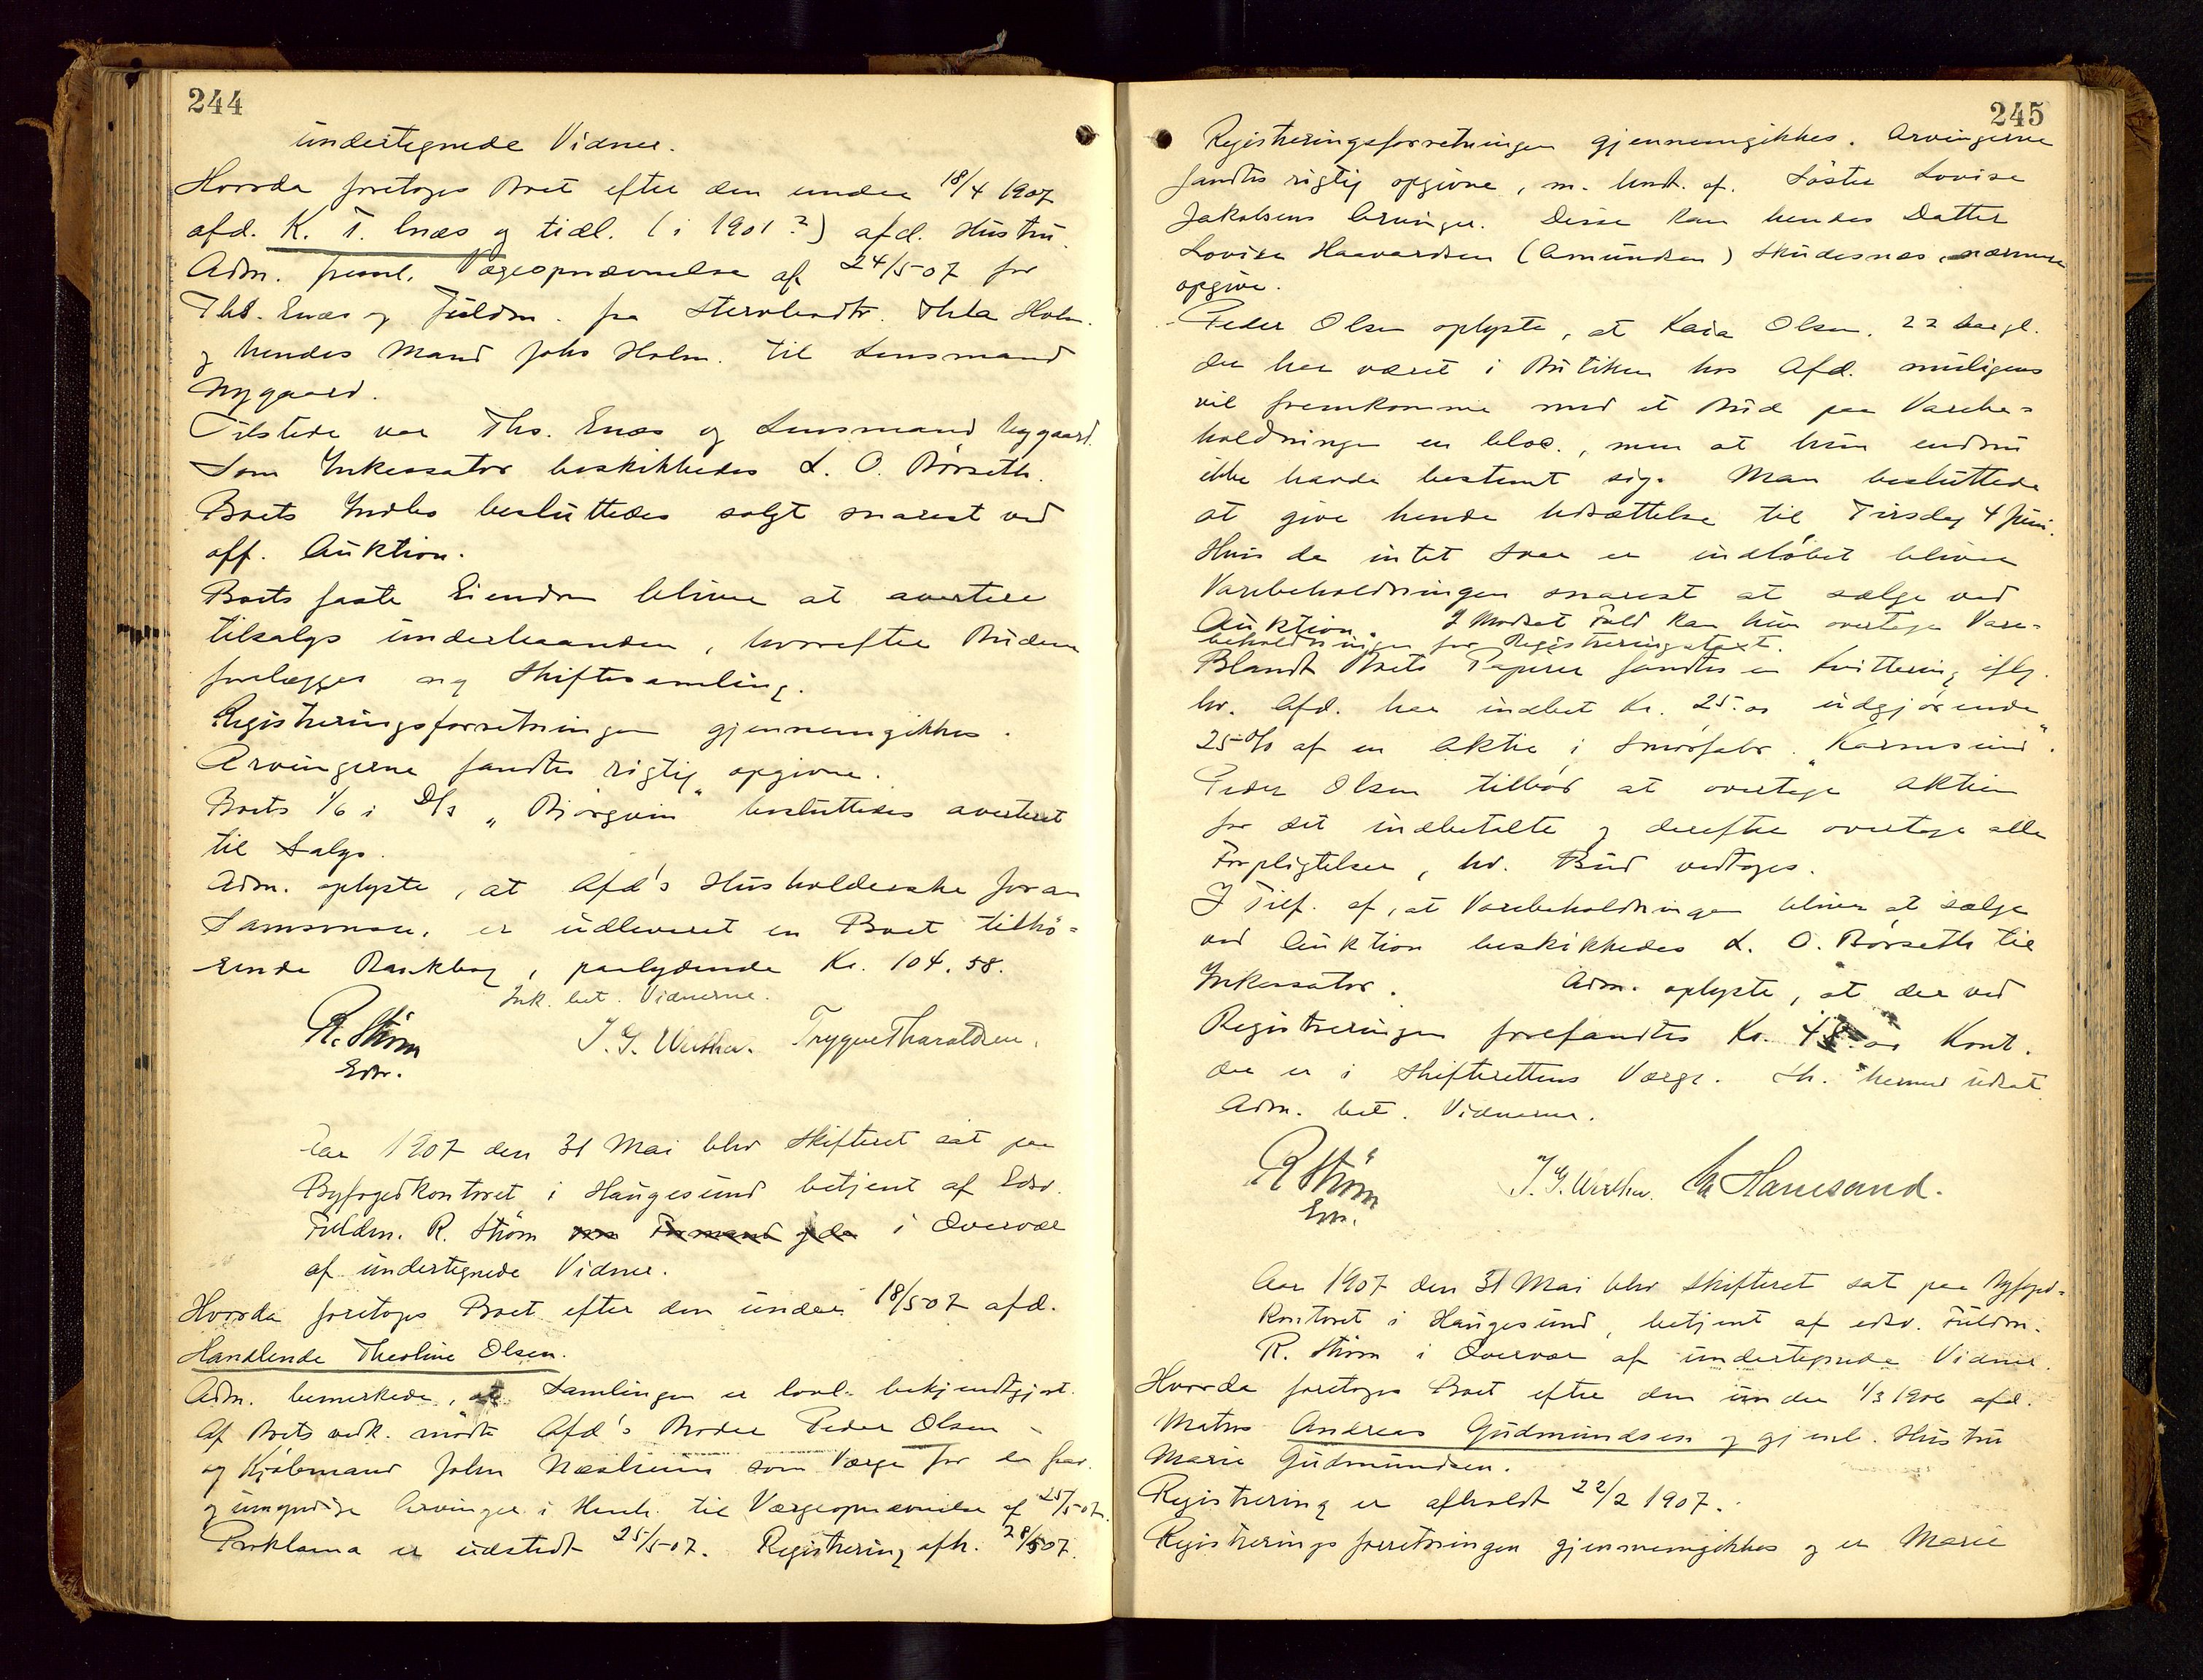 244
undertegnede Vidner.
Hvorda foretoges Boet efter den under 18/4 1907
afd. K. T. Enæs og tidl. (i 1901?) afd. Hustru.
Adm. freml. Værgeopnævnelse af 24/5-07 for
Ths. Enæs og Fuldm. fra Stervbendtr. Thea Holm.
og hendes Mand Johs Holm. til Lensmand
Nygaard.
Tilstede var Ths. Enæs og Lensmand Nygaard.
Som Inkassator beskikkedes L. O. Börseth.
Boets Indbo besluttedes solgt snarest ved
off. Auktion.
Boets faste Eiendom bliver at avertere
tilsalgs underhaanden, hvorefter Budene
forelægges ny Skiftesamling.
Registreringsforretningen gjennemgikkes.
Arvingerne fandtes rigtig opgivne.
Boets 1/6 i D/S "Björgvin" besluttedes averteret
til Salgs.
Adm. oplyste, at Afd's Husholderske Joran
Samsonsen, er udleveret en Boet tilhö=
rende Bankbog, paalydende Kr. 104.58.
Ink. bet. Vidnerne.
R. Ström
Edsv.
J. G. Wuthu. Trygve Tharaldsen.
Aar 1907 den 31 Mai blev Skifteret sat paa
Byfogedkontoret i Haugesund betjent af Edsv.
Fuldm. R. Ström i Overvær
af undertegnede Vidner.
Hvorda foretoges Boet efter den under 18/5-07 afd.
Handlende Theoline Olsen.
Adm. bemerkede, at Samlingen er lovl. bekjendtgjort.
Af Boets vedk. mödte Afd's Broder Peder Olsen
og Kjöbmand John Næsheim som Værge for de frav.
og umyndige Arvinger i Henh. til Værgeopnævnelse af 25/5-07.
Proklama er udstedt 25/5-07. Registrering afh. 28/5 07.
245
Registreringsforretningen gjennemgikkes. Arvingerne
fandtes rigtig opgivne, m. Undt. af. Söster Lovise
Jakobsens Arvinger. Disse kan hendes Datter
Lovise Haavardsen (Amundsen) Skudesnæs, nærmere
opgive.
Peder Olsen oplyste, at Kaia Olsen, 22 Aar gl.
der har været i Butiken hos Afd. muligens
vil fremkomme med et Bud paa Varebe=
holdningen en bloc., men at hun endnu
ikke havde bestemt sig. Man besluttede
at give hende Udsættelse til Tirsdag 4 Juni.
Hvis da intet Svar er indlöbet bliver
Varebeholdningen snarest at sælge ved
Auktion. I Modsat Fald kan hun overtage Vare=
beholdningen for Registreringstaxt.
Blandt Boets Papirer fandtes en Kvittering iflg.
hv. Afd. har indbet Kr. 25.00 udgjörende
25 0/0 af en Aktie i Smörfabr. "Karmsund".
Peder Olsen tilböd at overtage Aktien
for det indbetalte og derefter overtage alle
Forpligtelser, hv. Bud vedtoges.
I Tilf. af, at Varebeholdningen bliver at sælge
ved Auktion beskikkedes L. O. Börseth til
Inkassator. Adm. oplyste, at der ved
Registreringen forefandtes Kr. Kont.
der er i Skifterettens Værge. Sk. hermed udsat
Adm. bet. Vidnerne.
R Ström
Edsv.
J. G. Wuthu. Hanesand.
Aar 1907 den 31 Mai blev Skifteret sat paa Byfoged=
kontoret i Haugesund, betjent af edsv. Fuldm.
R. Ström i Overvær af undertegnede Vidner.
Hvorda foretoges Boet efter den under 1/3 1906 afd.
Matros Andreas Gudmundsen og gjenl. Hustru
Marie Gudmundsen.
Registrering er afholdt 22/2 1907.
Registreringsforretningen gjennemgikkes og er Marie